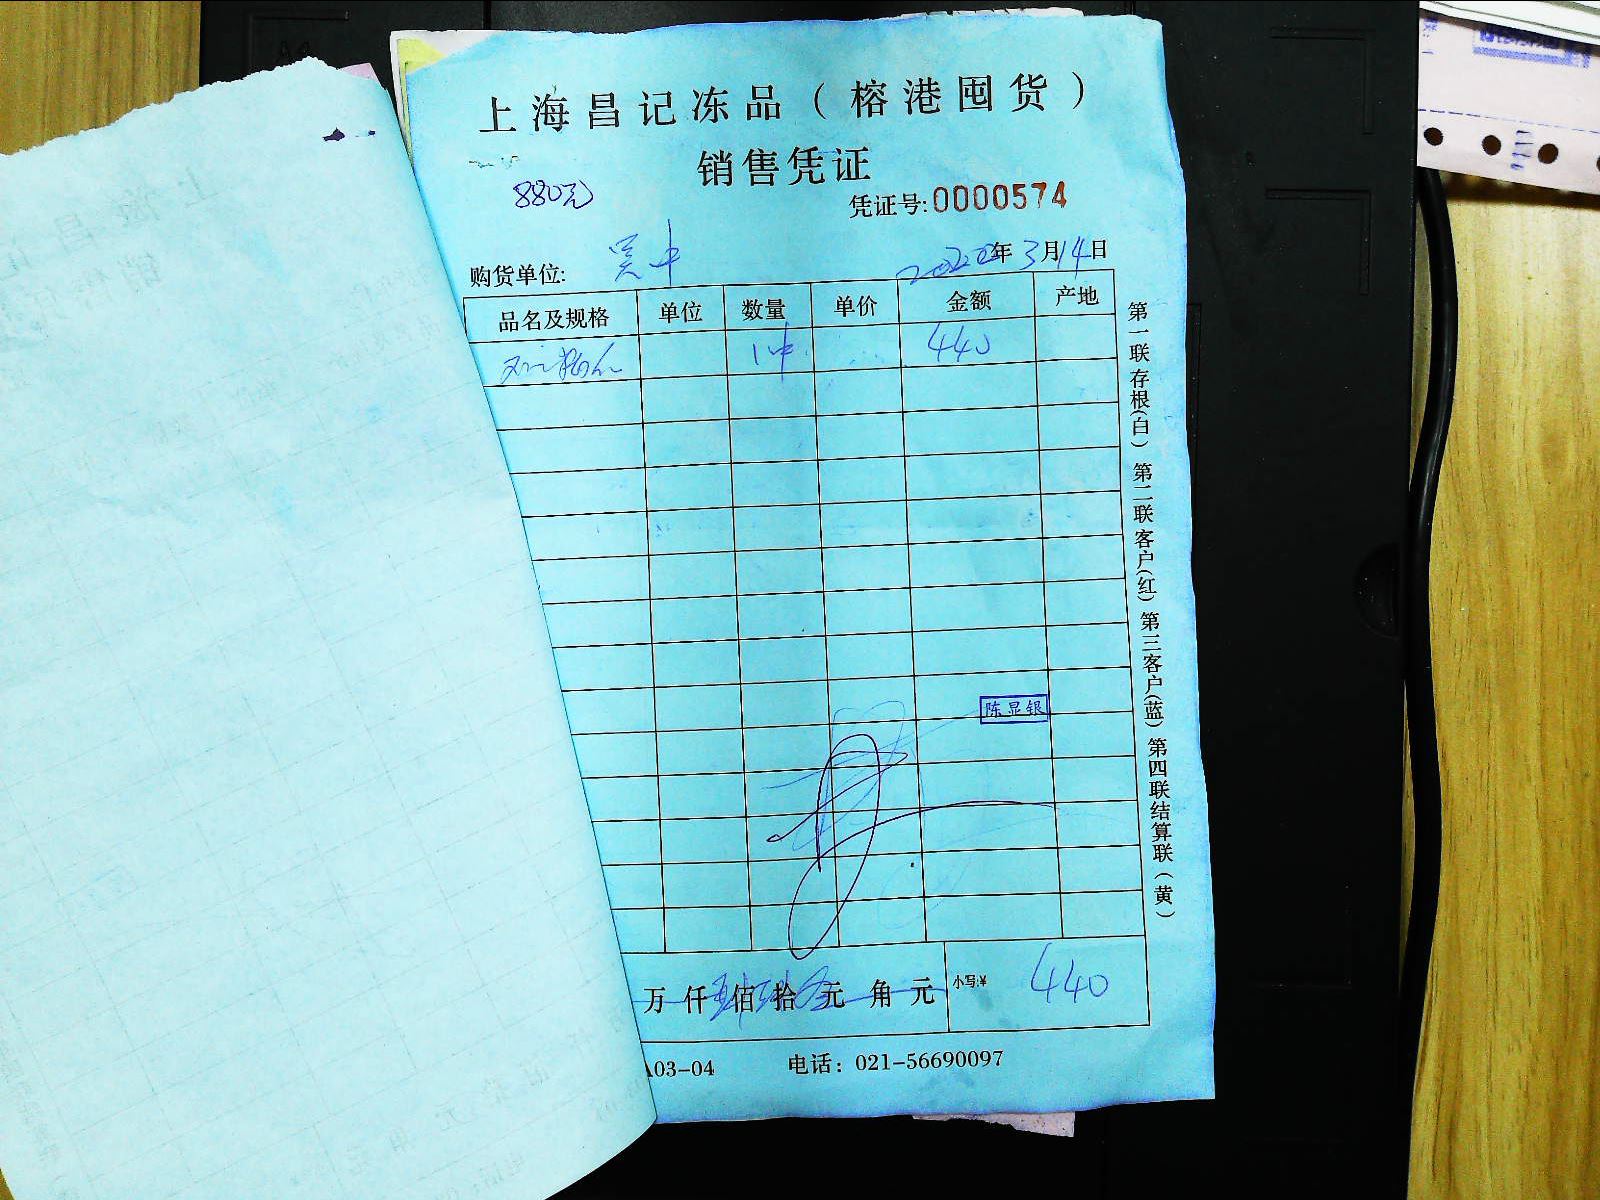 上海昌记冻品（榕港囤货）
销售凭证
880元
凭证号:0000574
购货单位: 吴中 2022年3月14日
品名及规格 单位 数量 单价 金额 产地
1件 440
陈显银
万仟肆佰肆拾零元角元 小写:¥ 440
A03-04 电话：021-56690097
第一联存根(白) 第二联客户(红) 第三客户(蓝) 第四联结算联(黄)